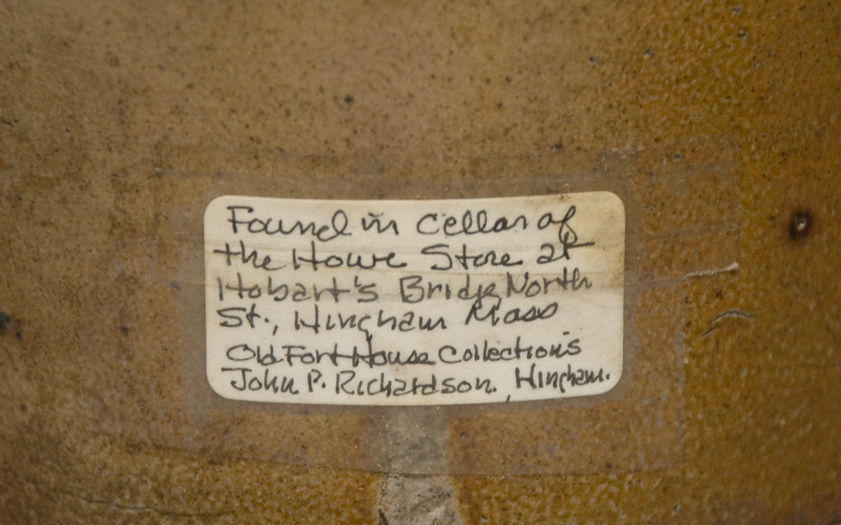 Found in cellar of
the Howe Store at
Hobart's Bridge North
St., Hingham Mass
Old Fort House Collections
John P. Richardson. Hingham.